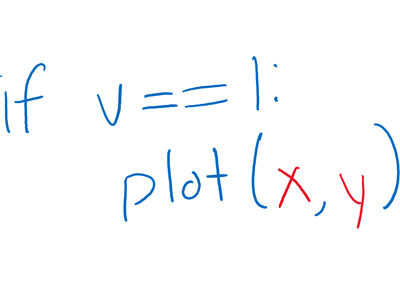 if v == 1:
plot(x, y)